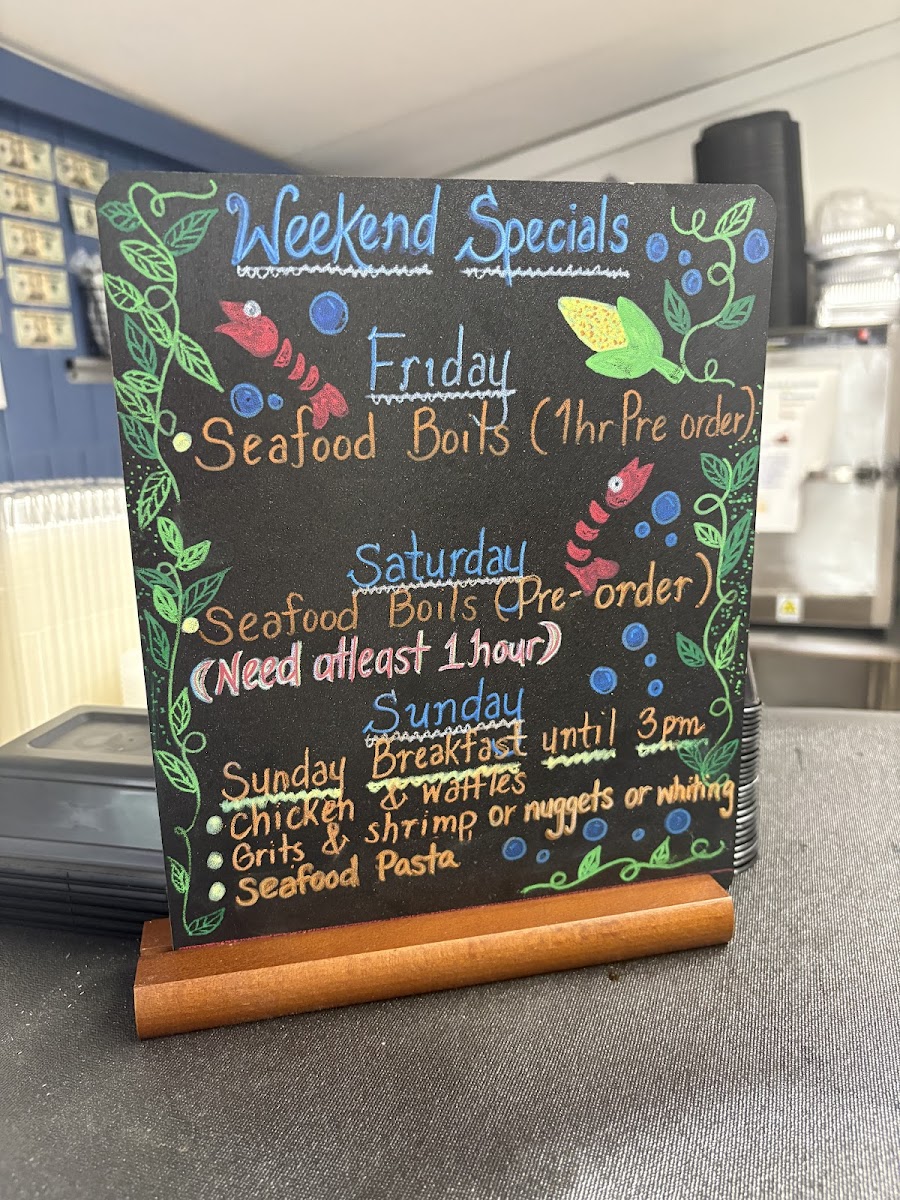 Weekend Specials
Friday
Seafood Boils (1hr Pre order)
Saturday
Seafood Boils (Pre-order)
(Need atleast 1 hour)
Sunday
Sunday Breakfast until 3pm
Chicken & Waffles
Grits & shrimp or nuggets or whiting
Seafood Pasta